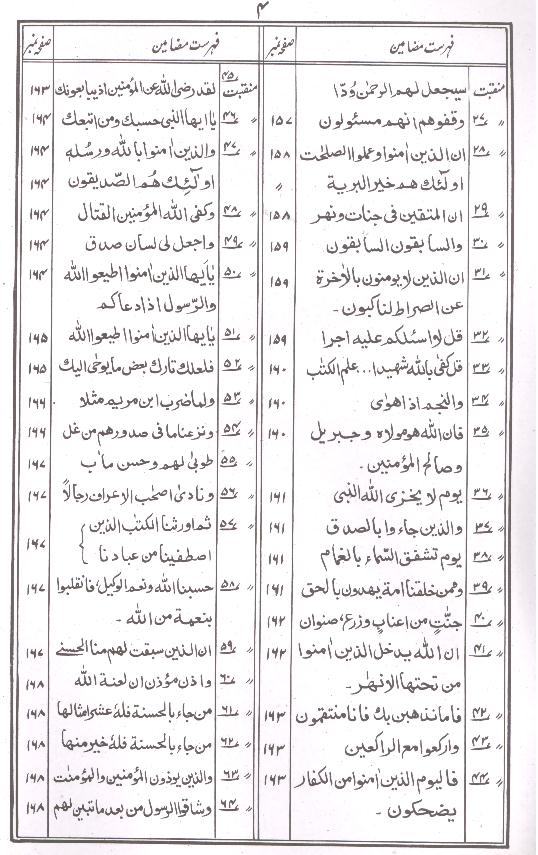 ۴
فہرست مضامین صفحہ نمبر
منقبت سیجعل لہم الرحمٰن وُدّا
〃 ۲۷ وقفوھم انہم مسئولون ۱۵۷
〃 ۲۸ ان الذین اٰمنوا وعملوا الصلحٰت ۱۵۸
اولٓئک ھم خیر البریة 〃
〃 ۲۹ ان المتقین فی جنات ونھر ۱۵۸
〃 ۳۰ والسابقون السابقون ۱۵۹
〃 ۳۱ ان الذین لایومنون بالاٰخرة ۱۵۹
عن الصراط لناکبون۔
〃 ۳۲ قل لا اسئلکم علیہ اجرا ۱۵۹
〃 ۳۳ قل کفٰی باللہ شھیدا... علم الکتٰب ۱۶۰
〃 ۳۴ والنجم اذا ھوٰی ۱۶۰
〃 ۳۵ فان اللہ ھو مولاہ وجبریل ۱۶۰
وصالح المؤمنین۔
〃 ۳۶ یوم لایخزی اللہ النبی ۱۶۱
〃 ۳۷ والذین جاءوا بالصدق ۱۶۱
〃 ۳۸ یوم تشقق السّماء بالغمام ۱۶۱
〃 ۳۹ وممن خلقنا امة یھدون بالحق ۱۶۱
〃 ۴۰ جنّٰتٍ من اعنابٍ وزرع، صنوان ۱۶۲
〃 ۴۱ ان اللہ یدخل الذین اٰمنوا ۱۶۲
من تحتھا الانھٰر۔
〃 ۴۲ فاما نذھبن بک فانا منتقمون ۱۶۳
〃 ۴۳ وارکعوا مع الراکعین ۱۶۳
〃 ۴۴ فالیوم الذین اٰمنوا من الکفار ۱۶۳
یضحکون۔
فہرست مضامین صفحہ نمبر
منقبت ۴۵ لقد رضی اللہ عن المؤمنین اذ یبایعونک ۱۶۳
〃 ۴۶ یا ایھا النبی حسبک ومن اتبعک ۱۶۴
〃 ۴۷ والذین اٰمنوا باللہ ورسلہ ۱۶۴
اولٰٓئک ھُم الصّدیقون
〃 ۴۸ وکفی اللہ المؤمنین القتال ۱۶۴
〃 ۴۹ واجعل لی لسان صدق ۱۶۴
〃 ۵۰ یٰایھا الذین اٰمنوا اطیعوا اللہ ۱۶۴
والرّسول اذا دعاکم
〃 ۵۱ یایھا الذین اٰمنوا اطیعوا اللہ ۱۶۵
〃 ۵۲ فلعلک تارک بعض مایوحٰی الیک ۱۶۵
〃 ۵۳ ولما ضرب ابن مریم مثلا ۱۶۶
〃 ۵۴ ونزعنا ما فی صدورھم من غل ۱۶۶
〃 ۵۵ طوبٰی لہم وحسن ماٰب ۱۶۷
〃 ۵۶ ونادیٰ اصحٰب الاعراف رجالاً ۱۶۷
〃 ۵۷ ثم اورثنا الکتٰب الذین ۱۶۷
اصطفینا من عبادنا
〃 ۵۸ حسبنا اللہ ونعم الوکیل، فانقلبوا ۱۶۷
بنعمة من اللہ۔
〃 ۵۹ ان الذین سبقت لھم منا الحسنٰی ۱۶۷
〃 ۶۰ واذن مؤذن ان لعنة اللہ ۱۶۸
〃 ۶۱ من جاء بالحسنة فلہٗ عشر امثالھا ۱۶۸
〃 ۶۲ من جاء بالحسنة فلہٗ خیر منھا ۱۶۸
〃 ۶۳ والذین یوذون المؤمنین والمؤمنٰت ۱۶۸
〃 ۶۴ وشاقوا الرسول من بعد ماتبین لھم ۱۶۸